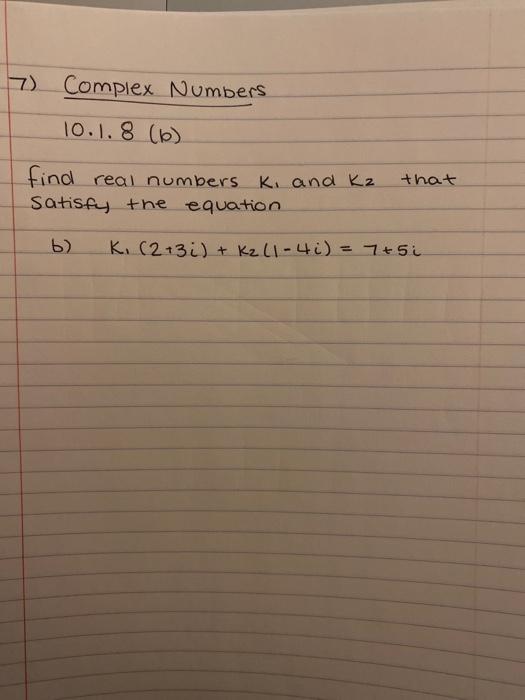 7) Complex Numbers
10.1.8 (b)
find real numbers K₁ and K₂ that
satisfy the equation
b) K₁ (2+3i) + K₂ (1-4i) = 7+5i